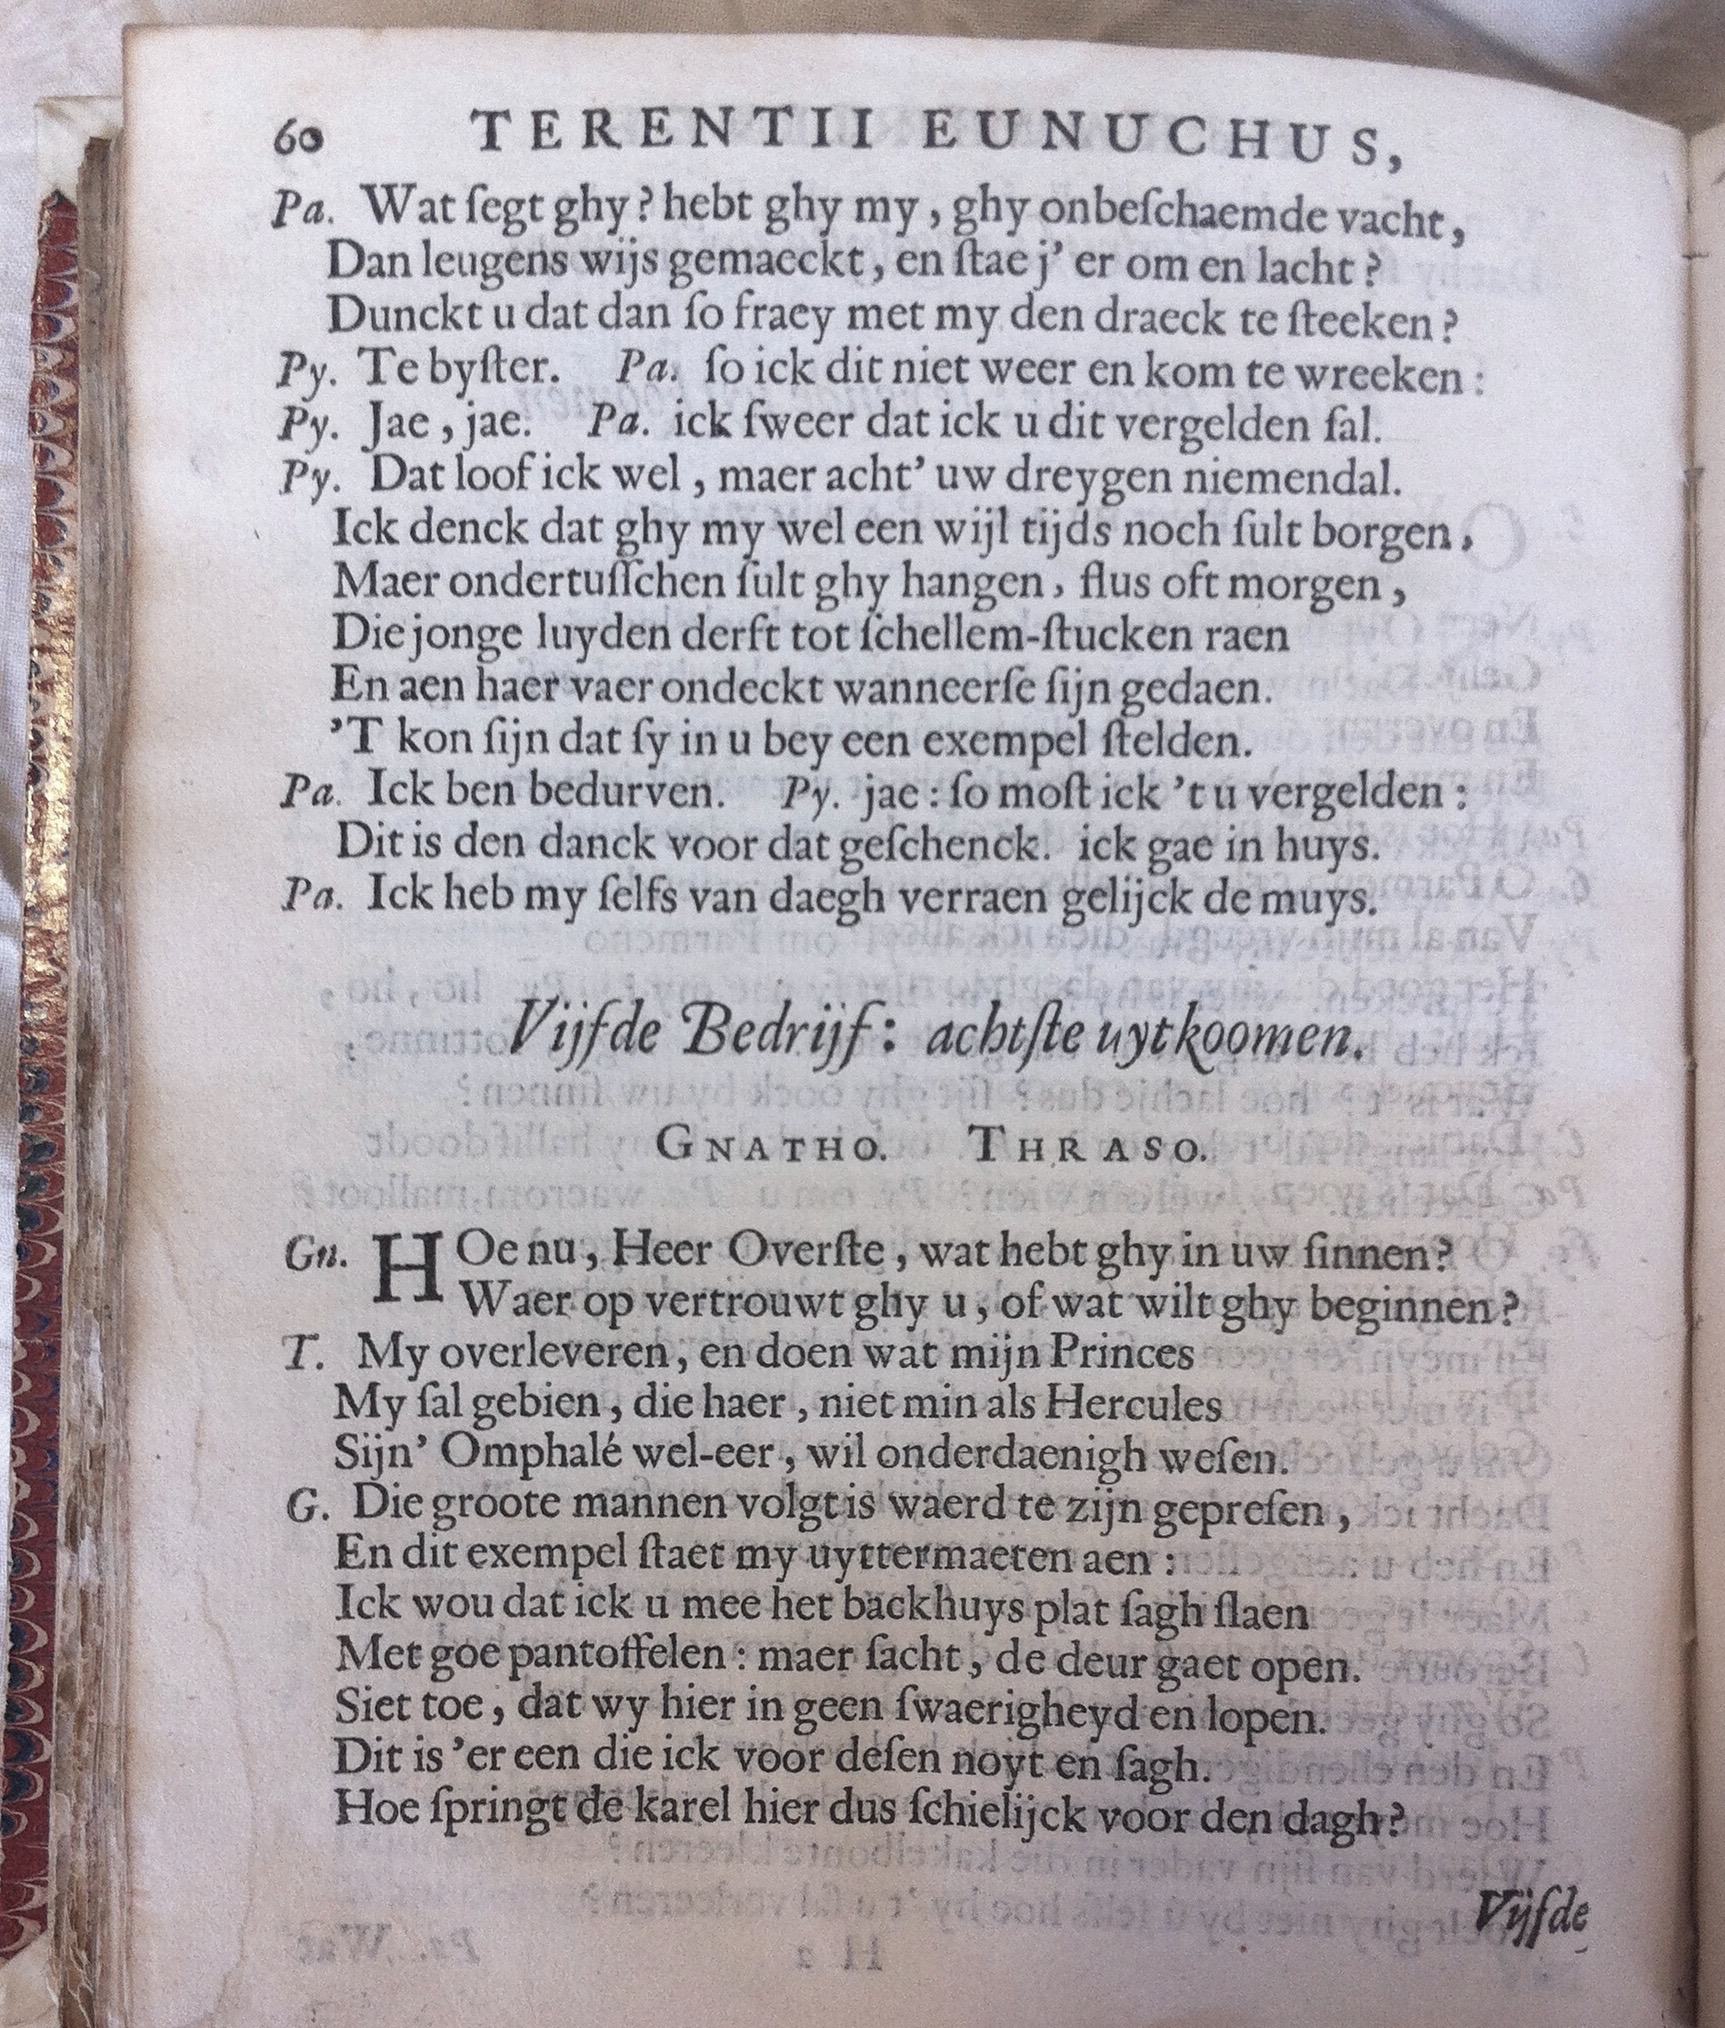 60 TERENTII EUNUCHUS,
Pa. Wat ſegt ghy? hebt ghy my, ghy onbeſchaemde vacht,
Dan leugens wijs gemaeckt, en ſtae j' er om en lacht?
Dunckt u dat dan ſo fraey met my den draeck te ſteeken?
Py. Te byſter. Pa. ſo ick dit niet weer en kom te wreeken:
Py. Jae, jae. Pa. ick ſweer dat ick u dit vergelden ſal.
Py. Dat loof ick wel, maer acht' uw dreygen niemendal.
Ick denck dat ghy my wel een wijl tijds noch ſult borgen,
Maer ondertuſſchen ſult ghy hangen, flus oft morgen,
Die jonge luyden derft tot ſchellem-ſtucken raen
En aen haer vaer ondeckt wanneerſe ſijn gedaen.
'T kon ſijn dat ſy in u bey een exempel ſtelden.
Pa. Ick ben bedurven. Py. jae: ſo moſt ick 't u vergelden:
Dit is den danck voor dat geſchenck. ick gae in huys.
Pa. Ick heb my ſelfs van daegh verraen gelijck de muys.
Vijfde Bedrijf: achtſte uytkoomen.
GNATHO. THRASO.
Gn. HOe nu, Heer Overſte, wat hebt ghy in uw ſinnen?
Waer op vertrouwt ghy u, of wat wilt ghy beginnen?
T. My overleveren, en doen wat mijn Princes
My ſal gebien, die haer, niet min als Hercules
Sijn' Omphalé wel-eer, wil onderdaenigh weſen.
G. Die groote mannen volgt is waerd te zijn gepreſen,
En dit exempel ſtaet my uyttermaeten aen:
Ick wou dat ick u mee het backhuys plat ſagh ſlaen
Met goe pantoffelen: maer ſacht, de deur gaet open.
Siet toe, dat wy hier in geen ſwaerigheyd en lopen.
Dit is 'er een die ick voor deſen noyt en ſagh.
Hoe ſpringt de karel hier dus ſchielijck voor den dagh?
Vijfde